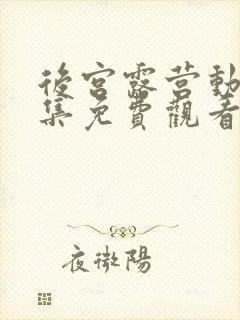 後宮露營動
集免費觀看
夜微陽